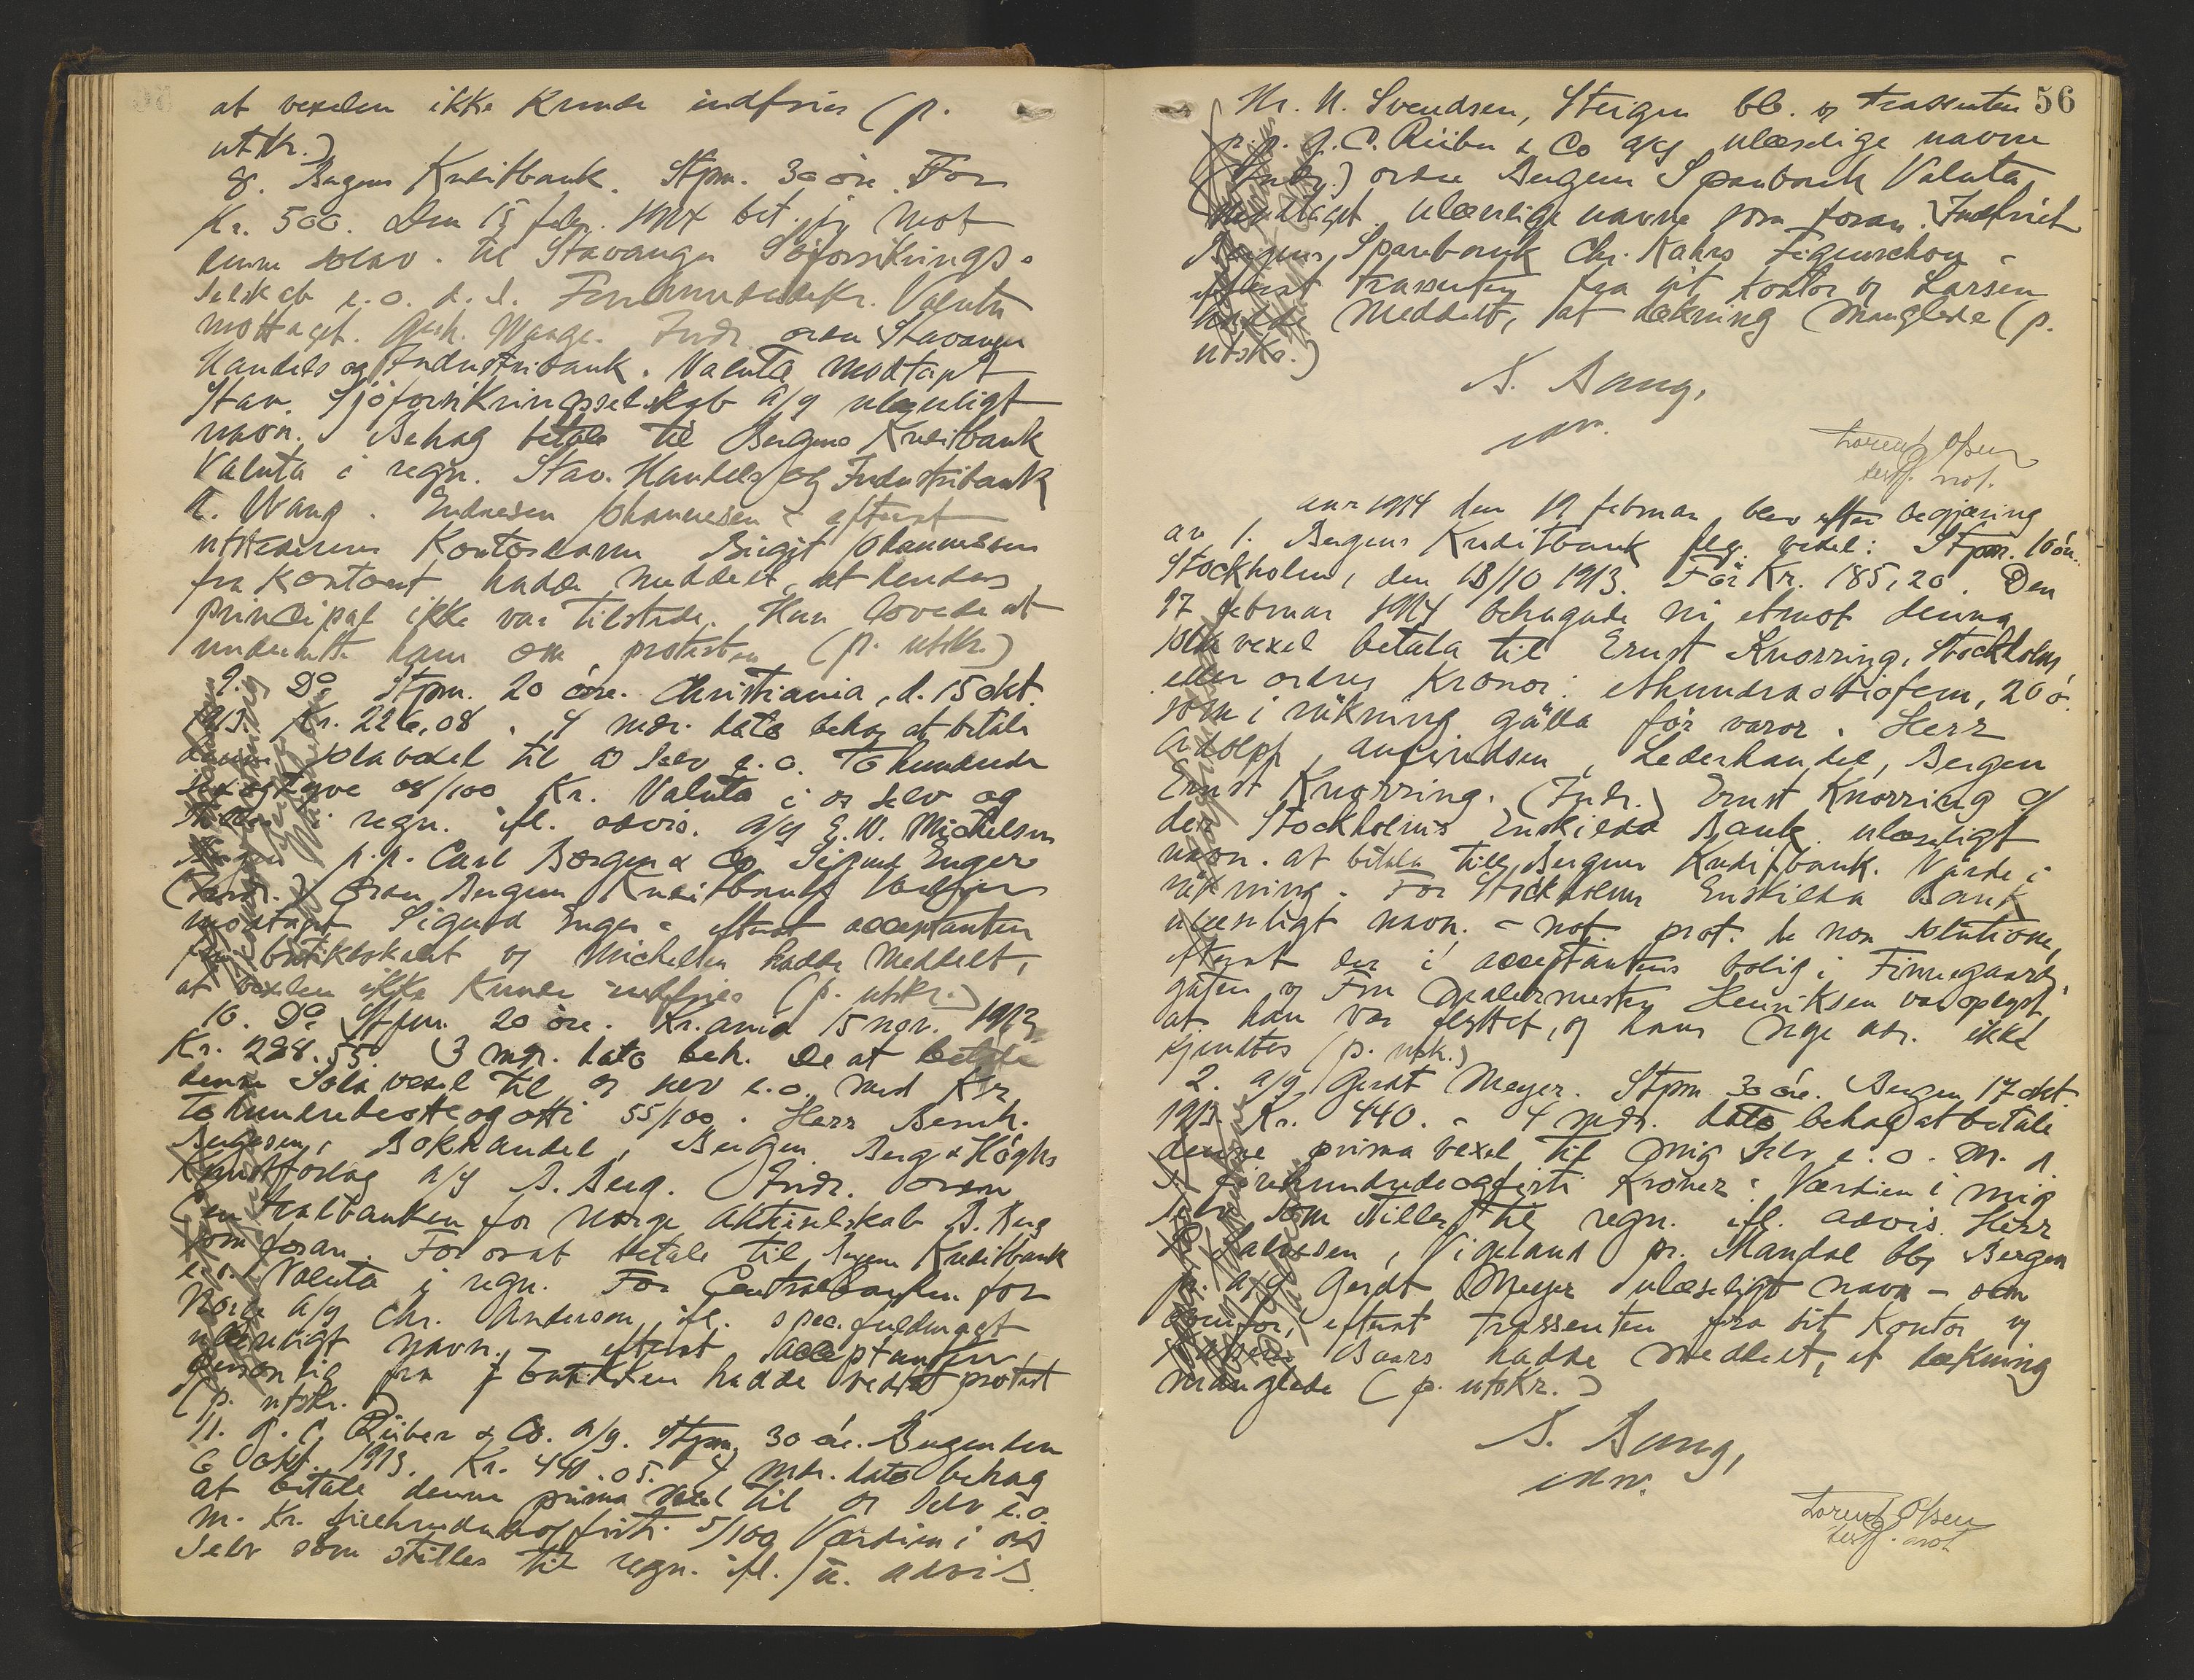 at vexelen ikke kunde indfries (p.
utskr.)
8. Bergens Kreditbank. Stpm. 30 øre. For
Kr. 500. Den 15 febr. 1914 bet. jeg mot
denne solav. til Stavanger Söforsikrings-
selskab e.o. d.s. Femhundrede Kr. Valuta
mottaget. Wange. Indr. ordre Stavanger
Handels og Industribank. Valuta modtaget
Stav. Sjöforsikringsselskab a/s ulæseligt
navn. Behag betale til Bergens Kreditbank
Valuta i regn. Stav. Handels og Industribank
Wang. Endresen Johannesen - efterat
utstederens Kontordame Birgit Johannessen
fra Kontoret hadde meddelt, at hendes
principal ikke var tilstede. Hun lovede at
underrette ham om protesten (p. utskr.)
9. Do Stpm. 20 øre. Christiania, d. 15 okt.
1913. Kr. 226,08. 4 mdr. dato behag at betale
denne solavexel til os selv e.o. To hundrede
sexogtyve 08/100 Kr. Valuta i os selv og
stilles i regn. ifl. advis. a/s E.W. Michelsen
Bergen p.p. Carl Borgen & Co Sigurd Enger
(Indr.) Ordre Bergens Kreditbank Valuta
modtaget Sigurd Enger - efterat acceptanten
fra butikslokalet v/ Michelsen hadde meddelt,
at vexelen ikke kunde indfries (p. utskr.)
10. Do Stpm. 20 øre. Kr.ania 15 nov. 1913
Kr. 288.55. 3 mdr. dato beh. De at betale
denne Sola vexel til os selv e.o. med Kr
Tohundredeotteogotti 55/100. Herr Bernh.
Bergesen, Bokhandel, Bergen. Berg & Höghs
Kunstforlag a/s B. Berg. Indr. ordre
Centralbanken for Norge Aktieselskab B. Berg
som foran. For os at betale til Bergens Kreditbank
e.o. Valuta i regn. For Centralbanken for
Norge a/s Chr. Andersen ifl. spec. fuldmagt
ulæseligt navn, - efterat acceptanten,
personlig fra butikken hadde vedtat protest
(p. utskr.)
11. G. C. Rieber & Co. a/s. Stpm. 30 øre. Bergen den
6 okt. 1913. Kr. 440.05. 4 mdr. dato behag
at betale denne prima vexel til os selv e.o.
m. Kr. firehundredeogfirti 5/100 Værdien i os
selv som stilles til regn. ifl. /u. advis
56
Hr. N. Svendsen, Steigen bb. v/ Trassenten
p.p. G.C. Rieber & Co a/s ulæselige navne
(Indr.) ordre Bergens Sparebank Valuta
modtaget ulæselige navne som foran. Indfriet
Bergens Sparebank Chr. Kahrs Figenschou -
efterat Trassenten fra sit Kontor v/ Larsen
hadde meddelt, at dækning manglede (p.
utskr.)
S. Bang,
Lorentz Olsen
not.
Aar 1914 den 19 februar blev efter begjæring
av 1. Bergens Kreditbank flg. vexel: Stpm. 10 öre.
Stockholm, den 13/10 1913. För Kr. 185,20. Den
17 februar 1914 behagade ni emot denna
sola vexel betala til Ernst Knorring, Stockholm
eller ordres Kronor: ethundraottiofem, 20 ö.
som i räkning gälla för varor. Herr
Adolph Amundsen, Lederhandel, Bergen
Ernst Knorring. (Indr.) Ernst Knorring
den Stockholms Enskilda Bank ulæseligt
navn. at betala till Bergens Kreditbank. Värde i
räkning. För Stockholms Enskilda Bank
ulæseligt navn. - not. prot. de non solutione,
efterat der i acceptantens bolig i Finnegaards-
gaten v/ Fru Malermester Henriksen var oplyst,
at han var flyttet, og hans nye adr. ikke
kjendtes (p. utsk.)
2. a/s Gerdt Meyer. Stpm. 30 öre. Bergen 17 okt.
1913. Kr. 440. - 4 mdr. dato behag at betale
denne prima vexel til mig selv e.o. m.
firehundredeogfirti Kroner: Værdien i mig
selv som stilles til regn. ifl. advis. Herr
Salvesen, Vigeland pr. Mandal bb. Bergen
p. a/s Gerdt Meyer ulæseligt navn - som
ovenfor, efterat trassenten fra sit Kontor v/
Baars hadde meddelt, at dækning
manglede (p. utskr.)
S. Bang,
Lorentz Olsen
not.